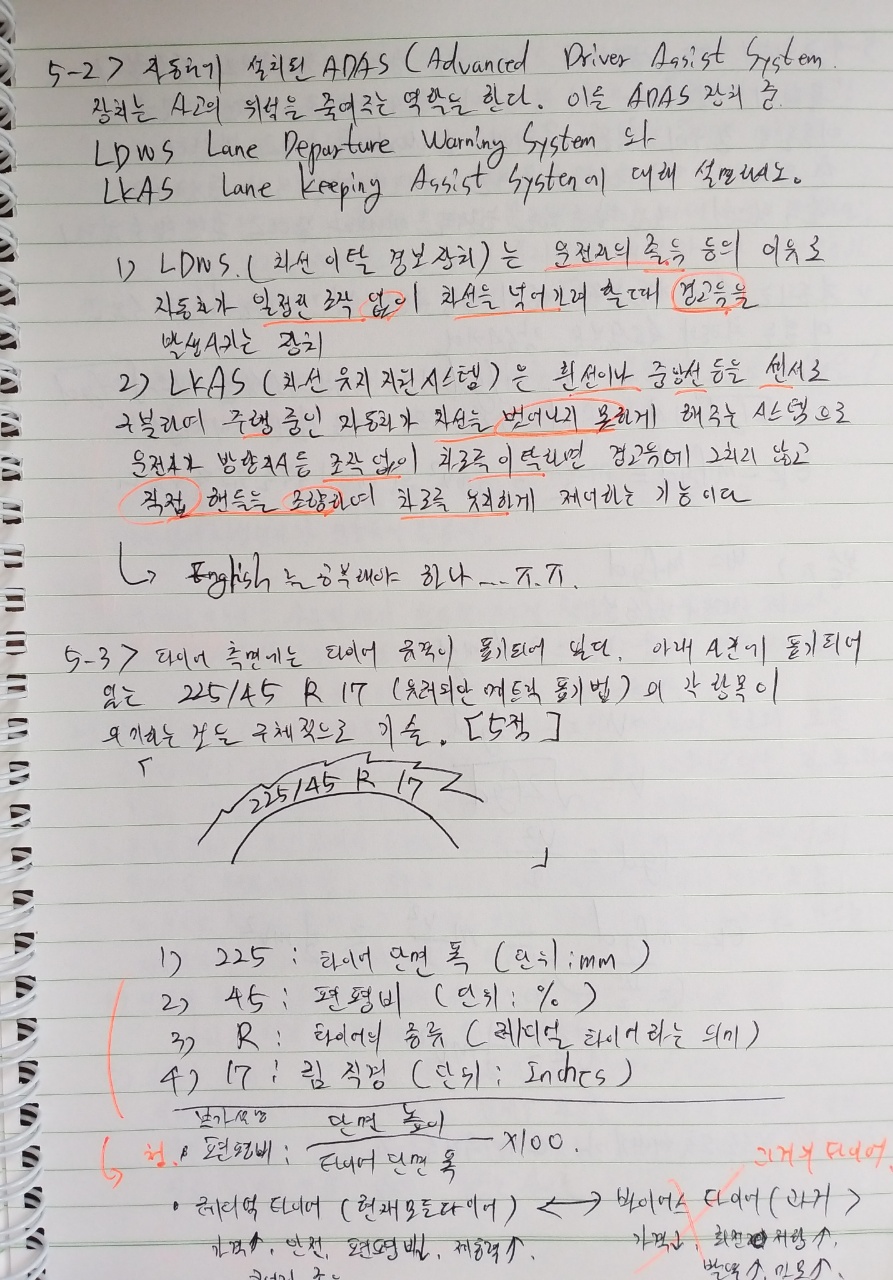 5-2> 자동차에 설치된 ADAS (Advanced Driver Assist System
장치는 사고의 위험을 줄여주는 역할을 한다. 이들 ADAS 장치 중
LDWS Lane Departure Warning System 와
LKAS Lane Keeping Assist System에 대해 설명하시오.
1) LDWS. (차선 이탈 경보 장치)는 운전자의 졸음 등의 이유로
자동차가 일정한 조작 없이 차선을 넘어가려 할 때 경고음을
발생시키는 장치
2) LKAS (차선 유지 지원 시스템)은 흰선이나 중앙선 등을 센서로
구분하여 주행 중인 자동차가 차선을 벗어나지 못하게 해주는 시스템으로
운전자가 방향지시등 조작 없이 차로를 이탈하면 경고음에 그치지 않고
직접 핸들을 조향하여 차로를 유지하게 제어하는 기능이다
↳ English 는 공부해야 하나 ... ㅠ.ㅠ.
5-3> 타이어 측면에는 타이어 규격이 표기되어 있다. 아래 사진에 표기되어
있는 225/45 R 17 (유러피안 메트릭 표기법)의 각 항목이
의미하는 것을 구체적으로 기술. [5점]
「
225/45 R 17
」
1) 225 : 타이어 단면 폭 (단위 : mm)
2) 45 : 편평비 (단위 : %)
3) R : 타이어의 종류 (레디얼 타이어라는 의미)
4) 17 : 림 직경 (단위 : Inches)
추가설명
편평비 : 단면 높이 / 타이어 단면 폭 ×100.
과거의 타이어
• 레디얼 타이어 (현재 모든 타이어) ↔ 바이어스 타이어 (과거)
가격↑, 안전, 편평비↓, 제동력↑. 가격↓, 회전 저항↑,
발열↑, 마모↑.